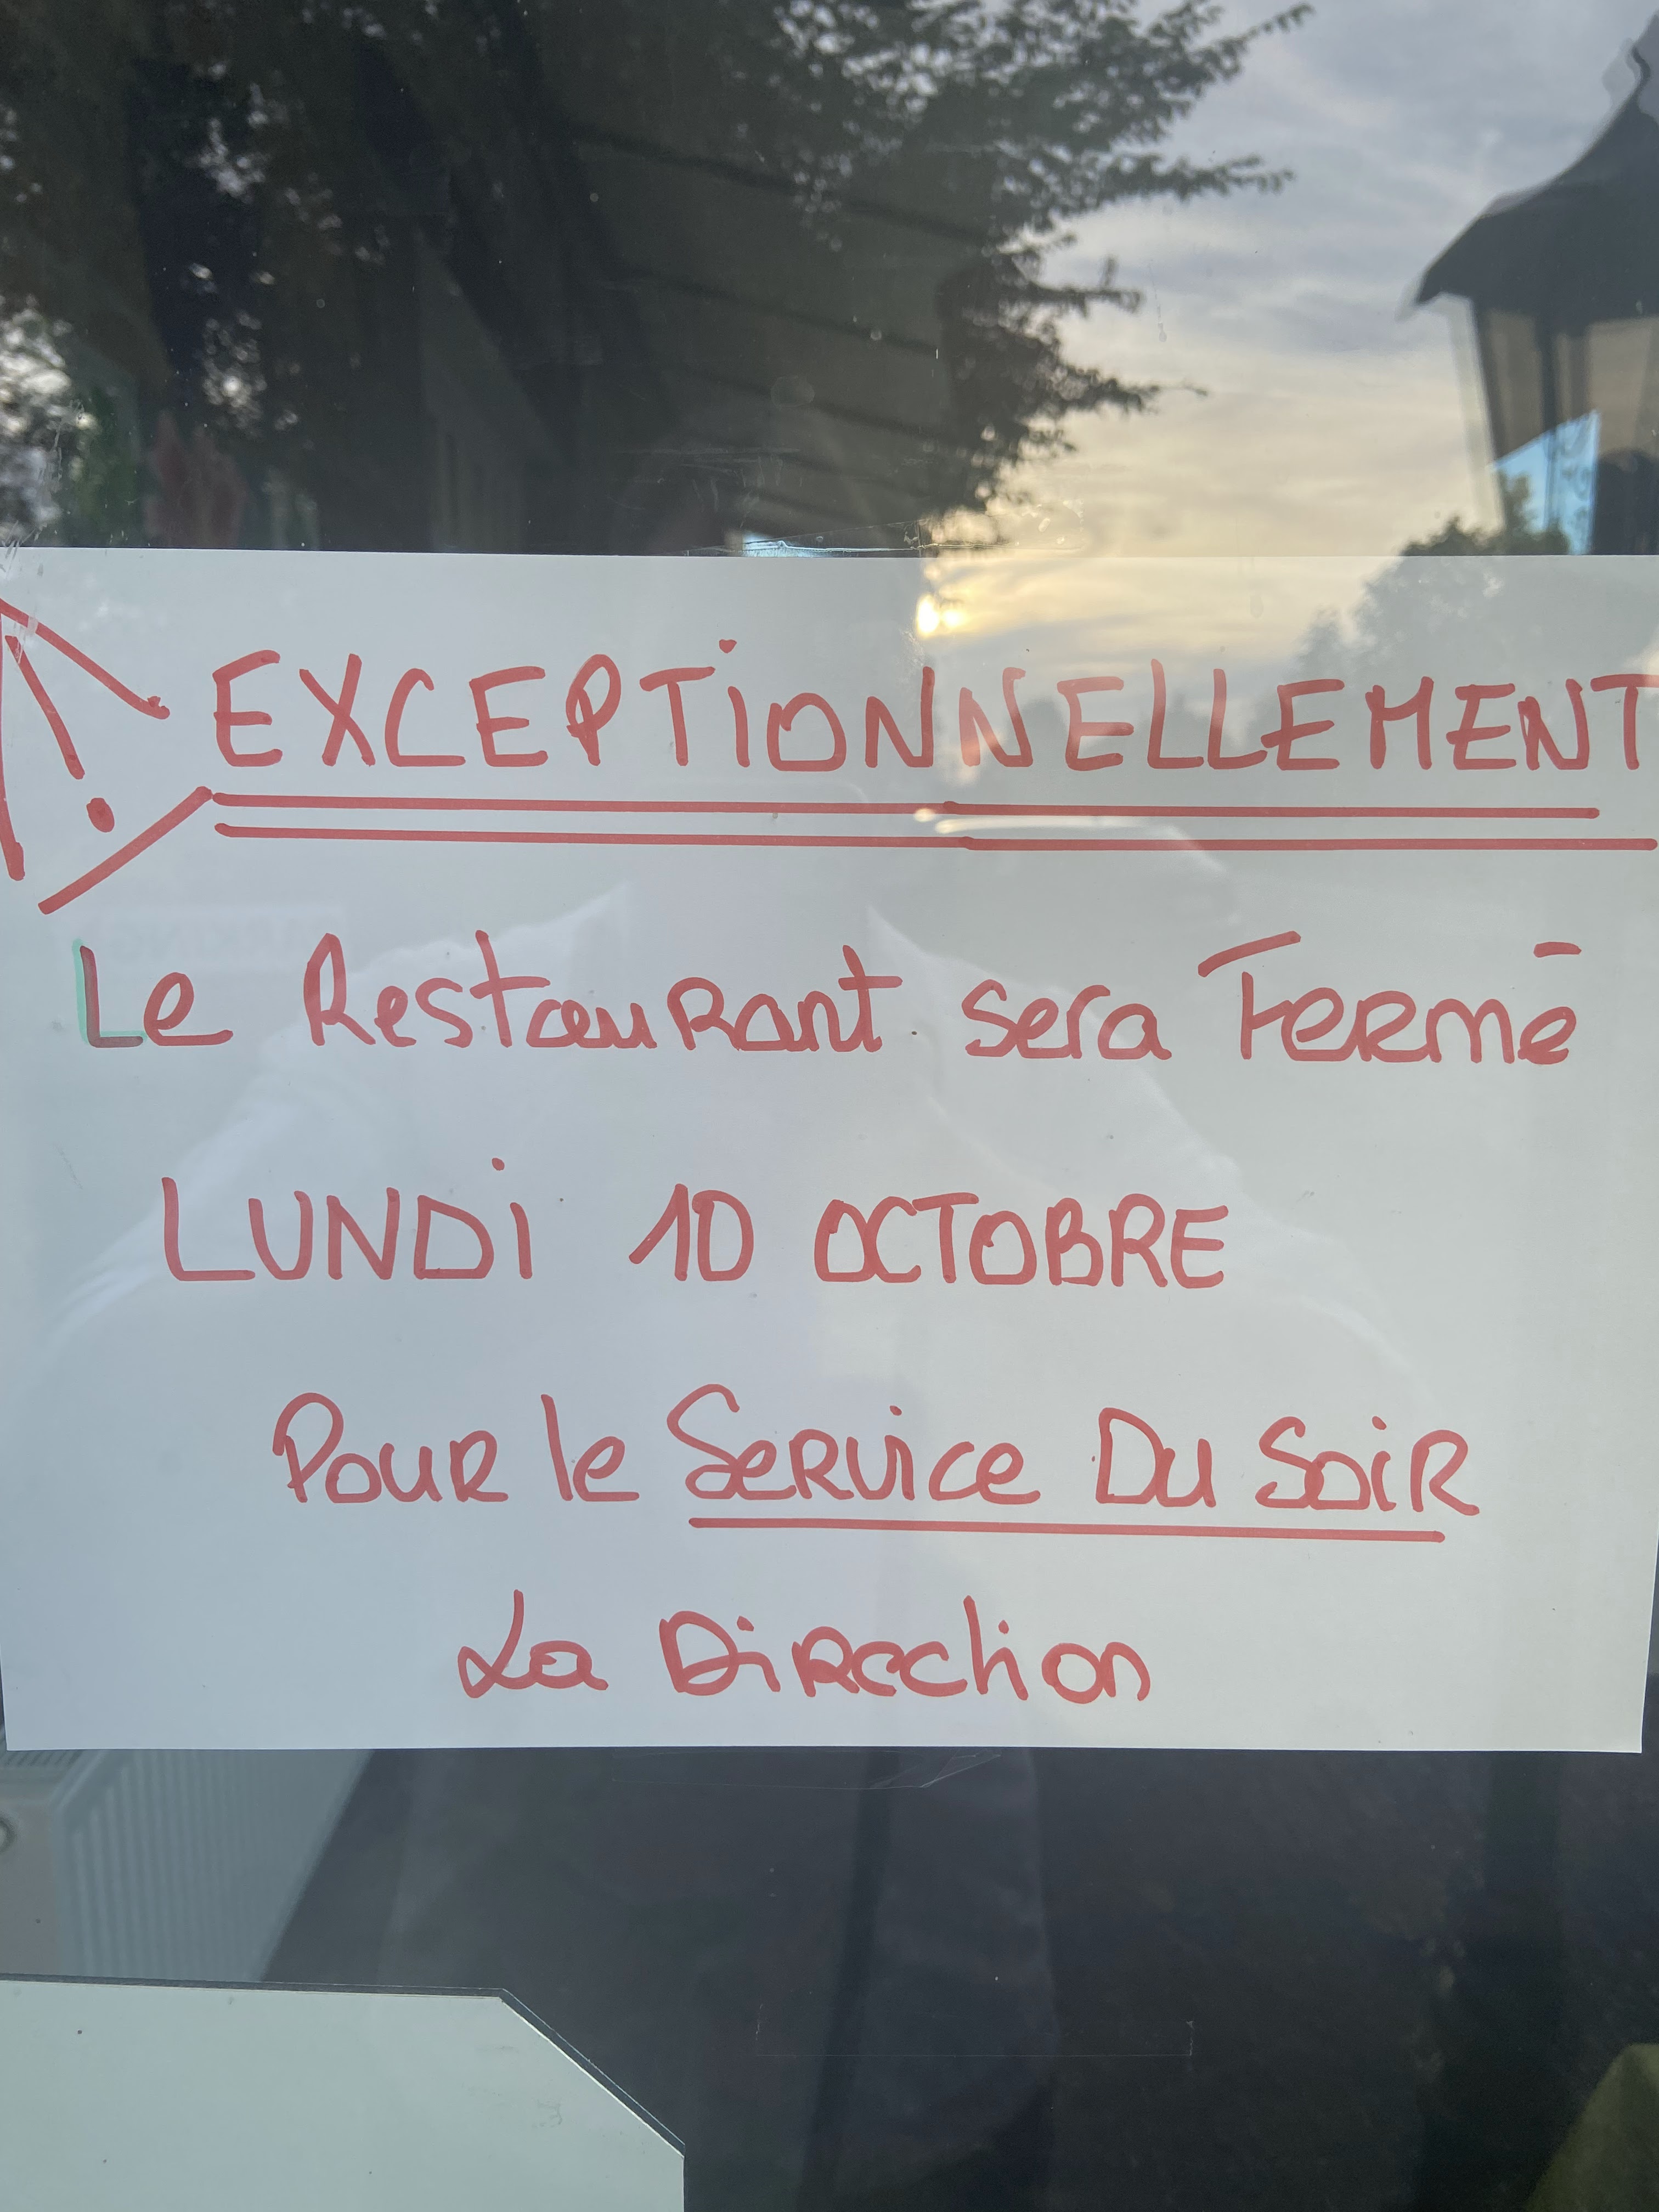 ! EXCEPTIONNELLEMENT
Le Restaurant sera Fermé
LUNDI 10 OCTOBRE
Pour le Service Du Soir
La Direction